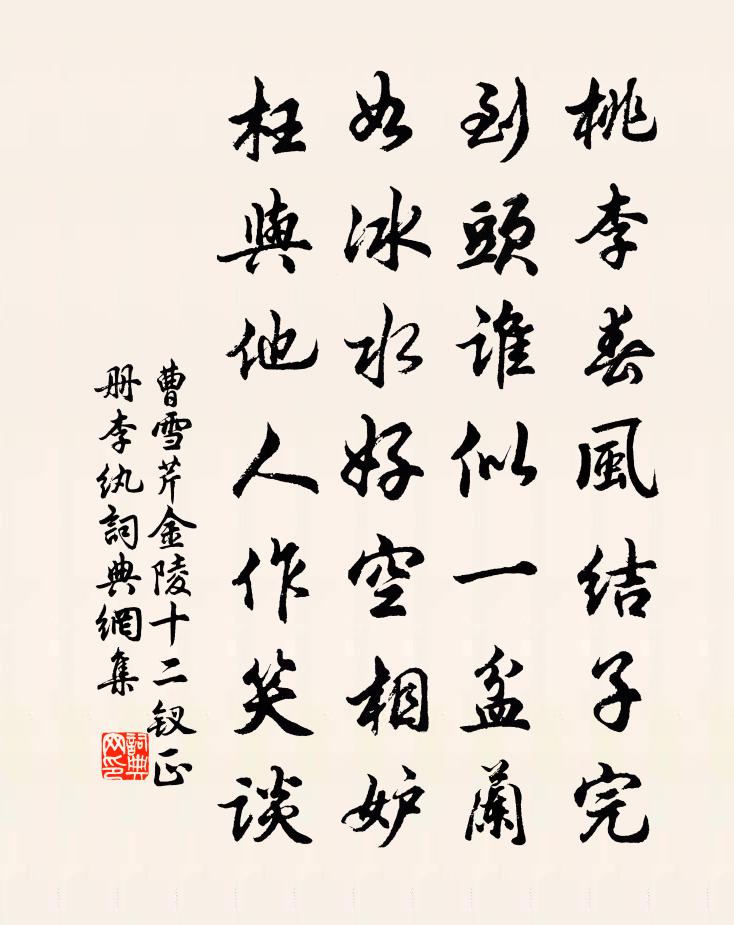 桃李春風結子完
到頭誰似一盆蘭
如冰水好空相妒
枉與他人作笑談
曹雪芹金陵十二釵正
册李紈詞典網集
詞典网印